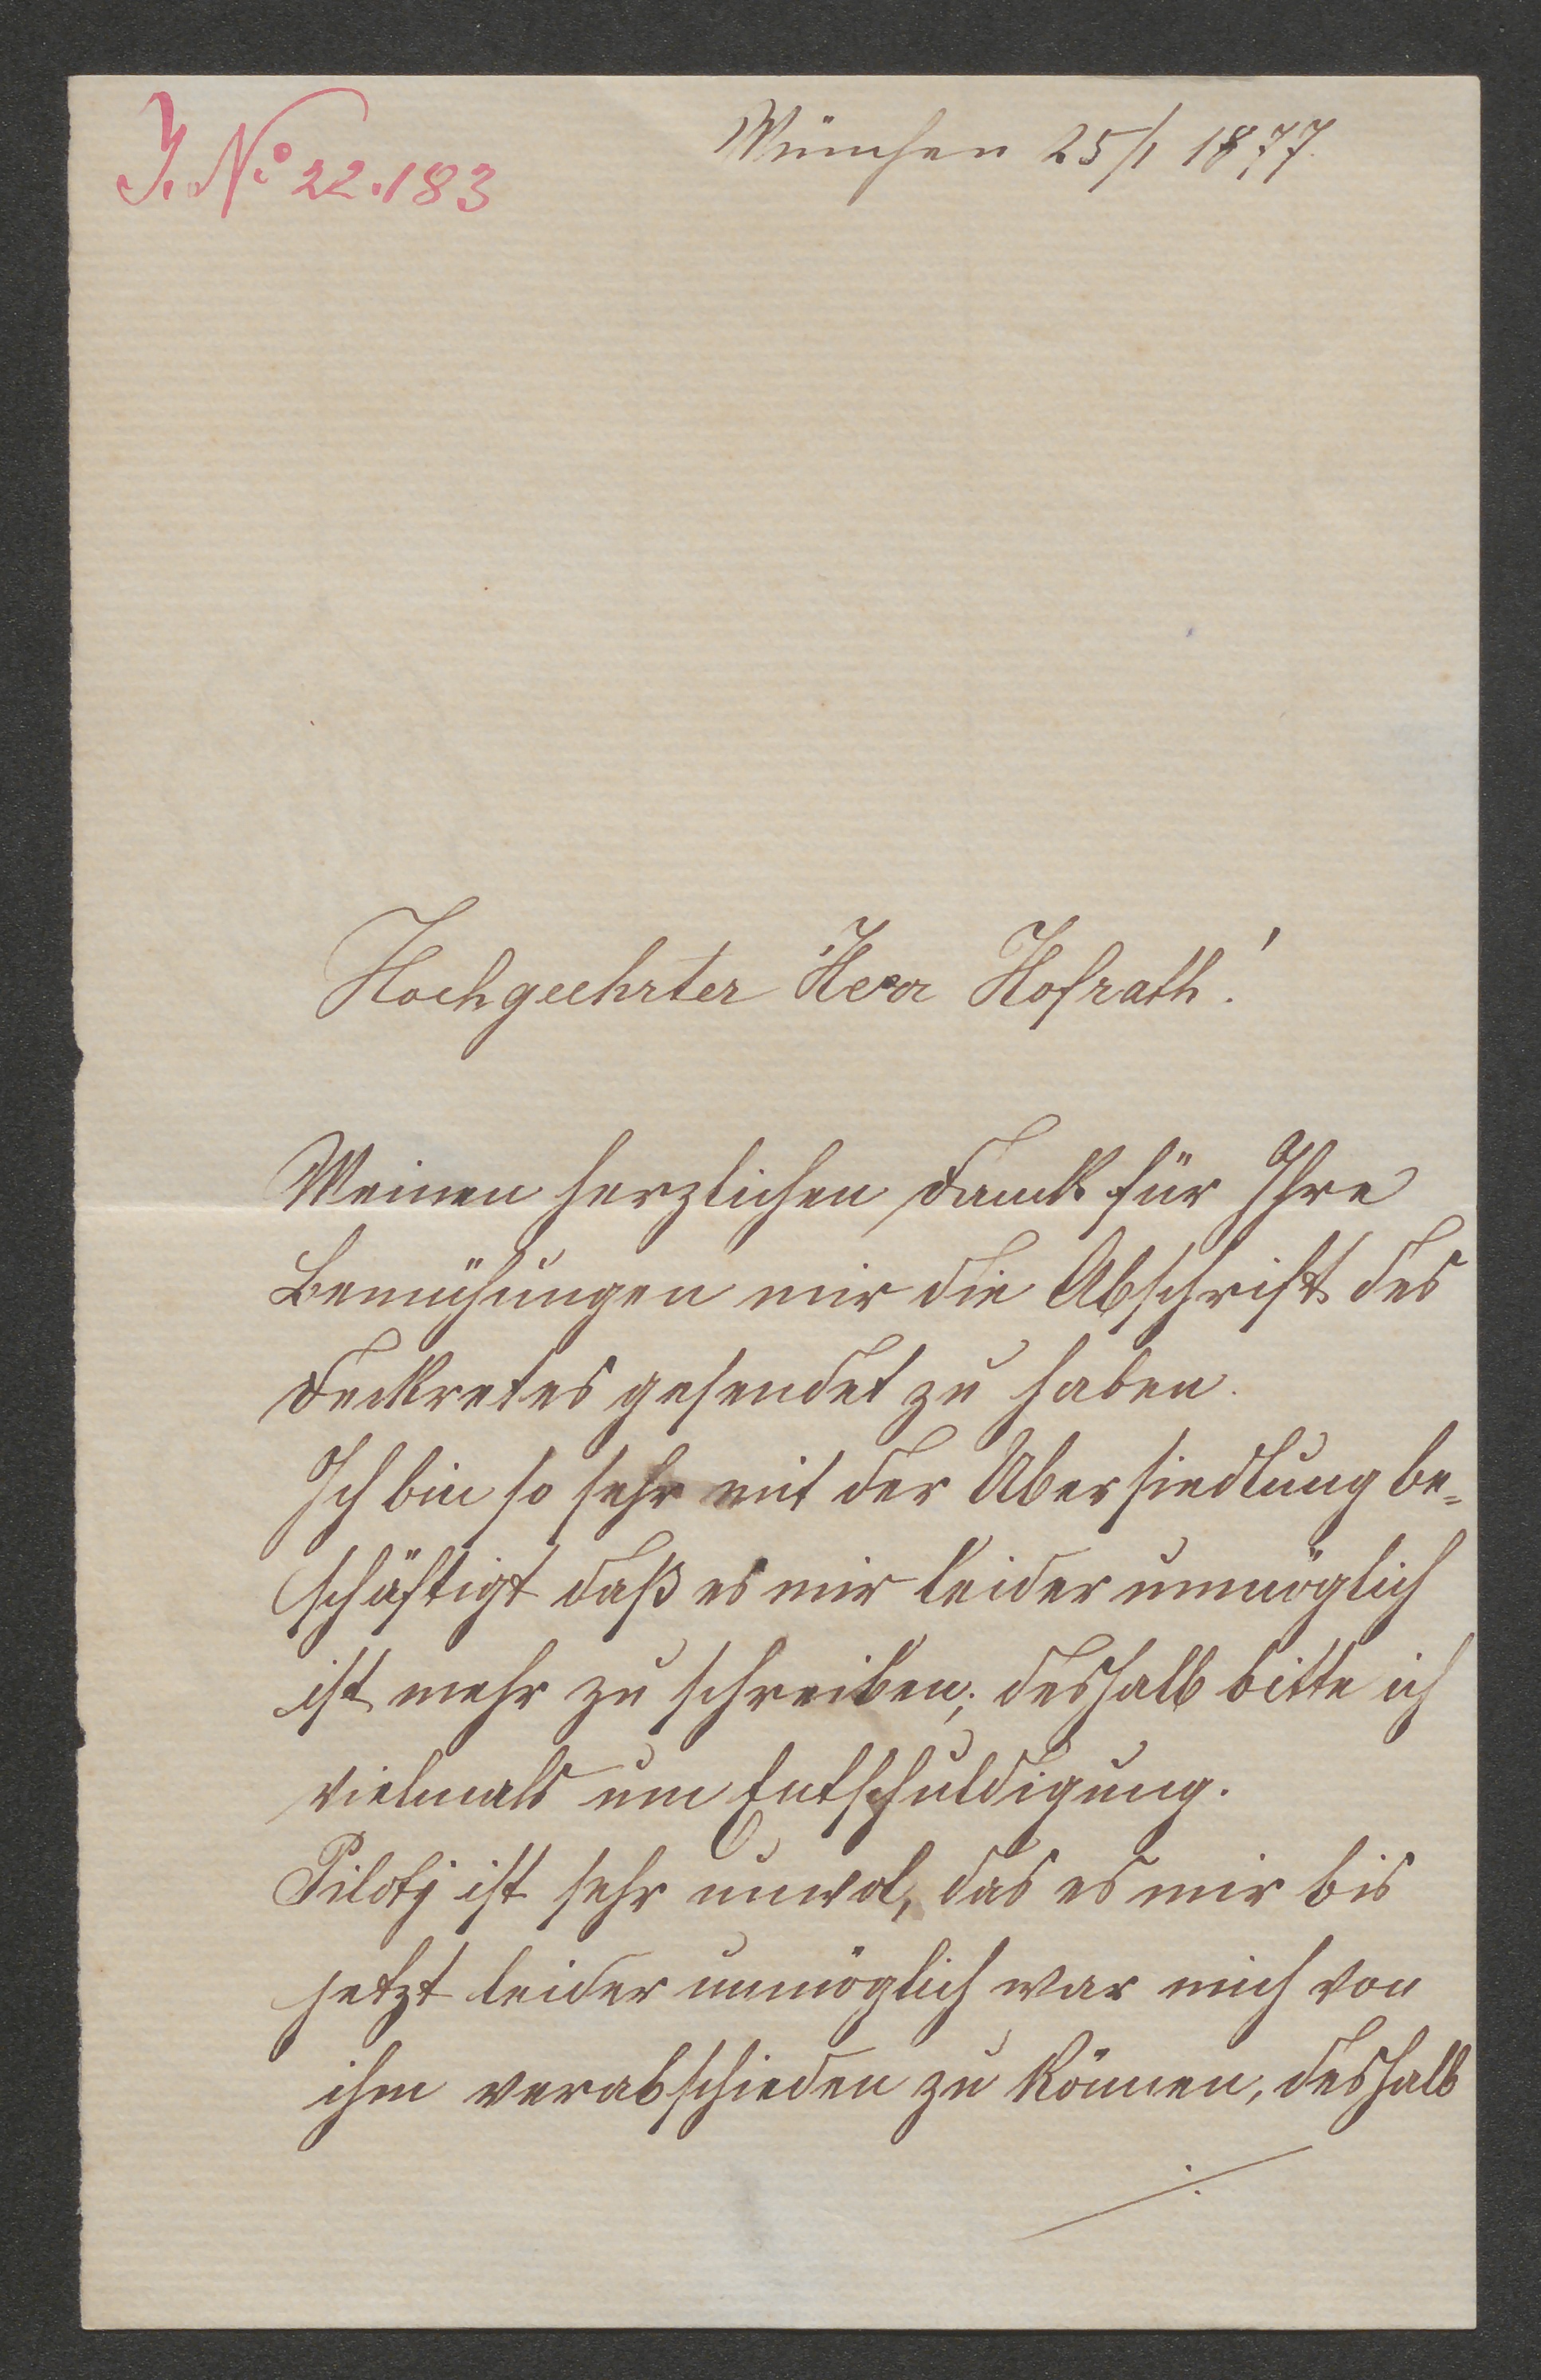 J. No 22.183
München 25/1 1877.
Hochgeehrter Herr Hofrath!
Meinen herzlichen Dank für Ihre
Bemühungen mir die Abschrift des
Dekretes gesendet zu haben.
Ich bin so sehr mit der Übersiedlung be=
schäftigt daß es mir leider unmöglich
ist mehr zu schreiben; deshalb bitte ich
vielmals um Entschuldigung.
Piloty ist sehr unwol, das es mir bis
jetzt leider unmöglich war mich von
ihm verabschieden zu können, deshalb
./.